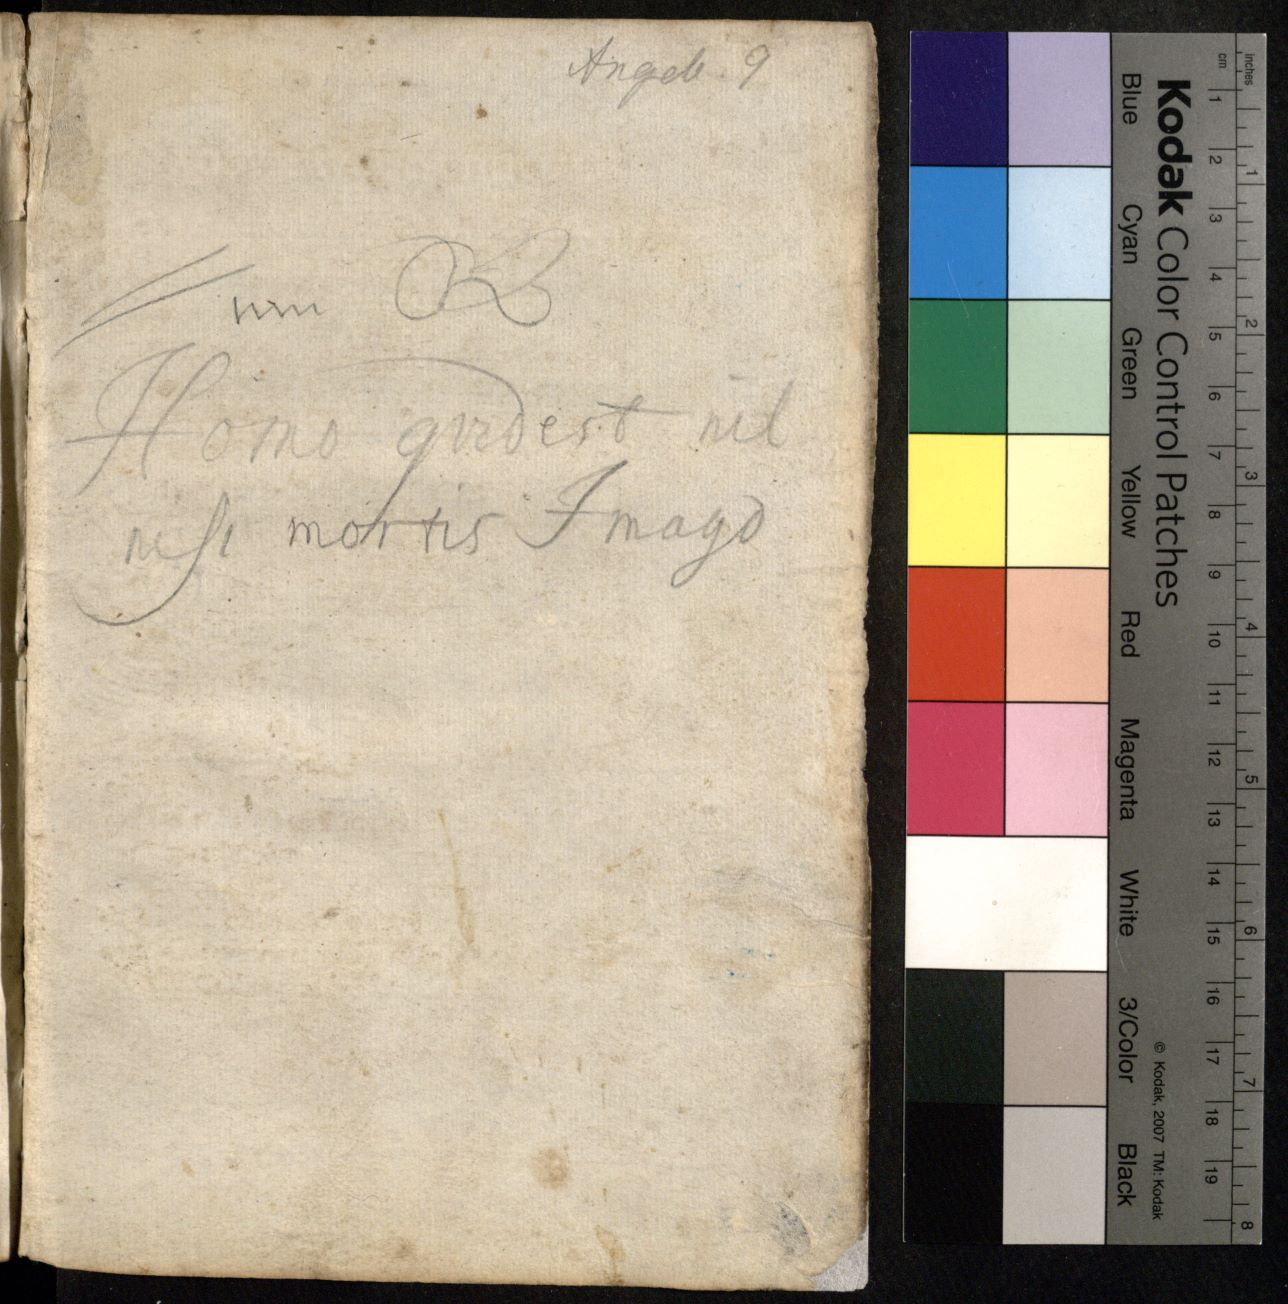 Angeli 9
Homo quidest nil
nisi mortis Imago
Kodak Color Control Patches
Blue Cyan Green Yellow Red Magenta White 3/Color Black
© Kodak, 2007 TM: Kodak
cm 1 2 3 4 5 6 7 8 9 10 11 12 13 14 15 16 17 18 19
inches 1 2 3 4 5 6 7 8